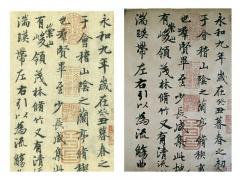 永和九年歲在癸丑暮春之初
于會稽山陰之蘭亭脩禊
也羣賢畢至少長咸集此
有崇山峻領茂林脩竹又有清流
湍暎帶左右引以為流觴曲
永和九年歲在癸丑暮春之初
于會稽山陰之蘭亭脩禊
也羣賢畢至少長咸集此地
有崇山峻領茂林脩竹又有清流
湍暎帶左右引以為流觴曲